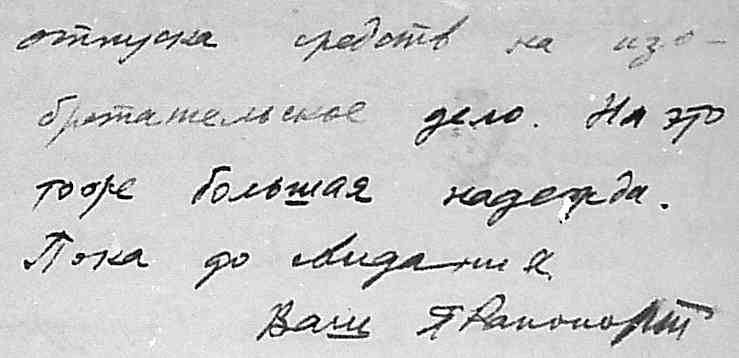 отпуска средств на изо-
бретательское дело. На это
тоже большая надежда.
Пока до свидания
Ваш Я Рапопорт